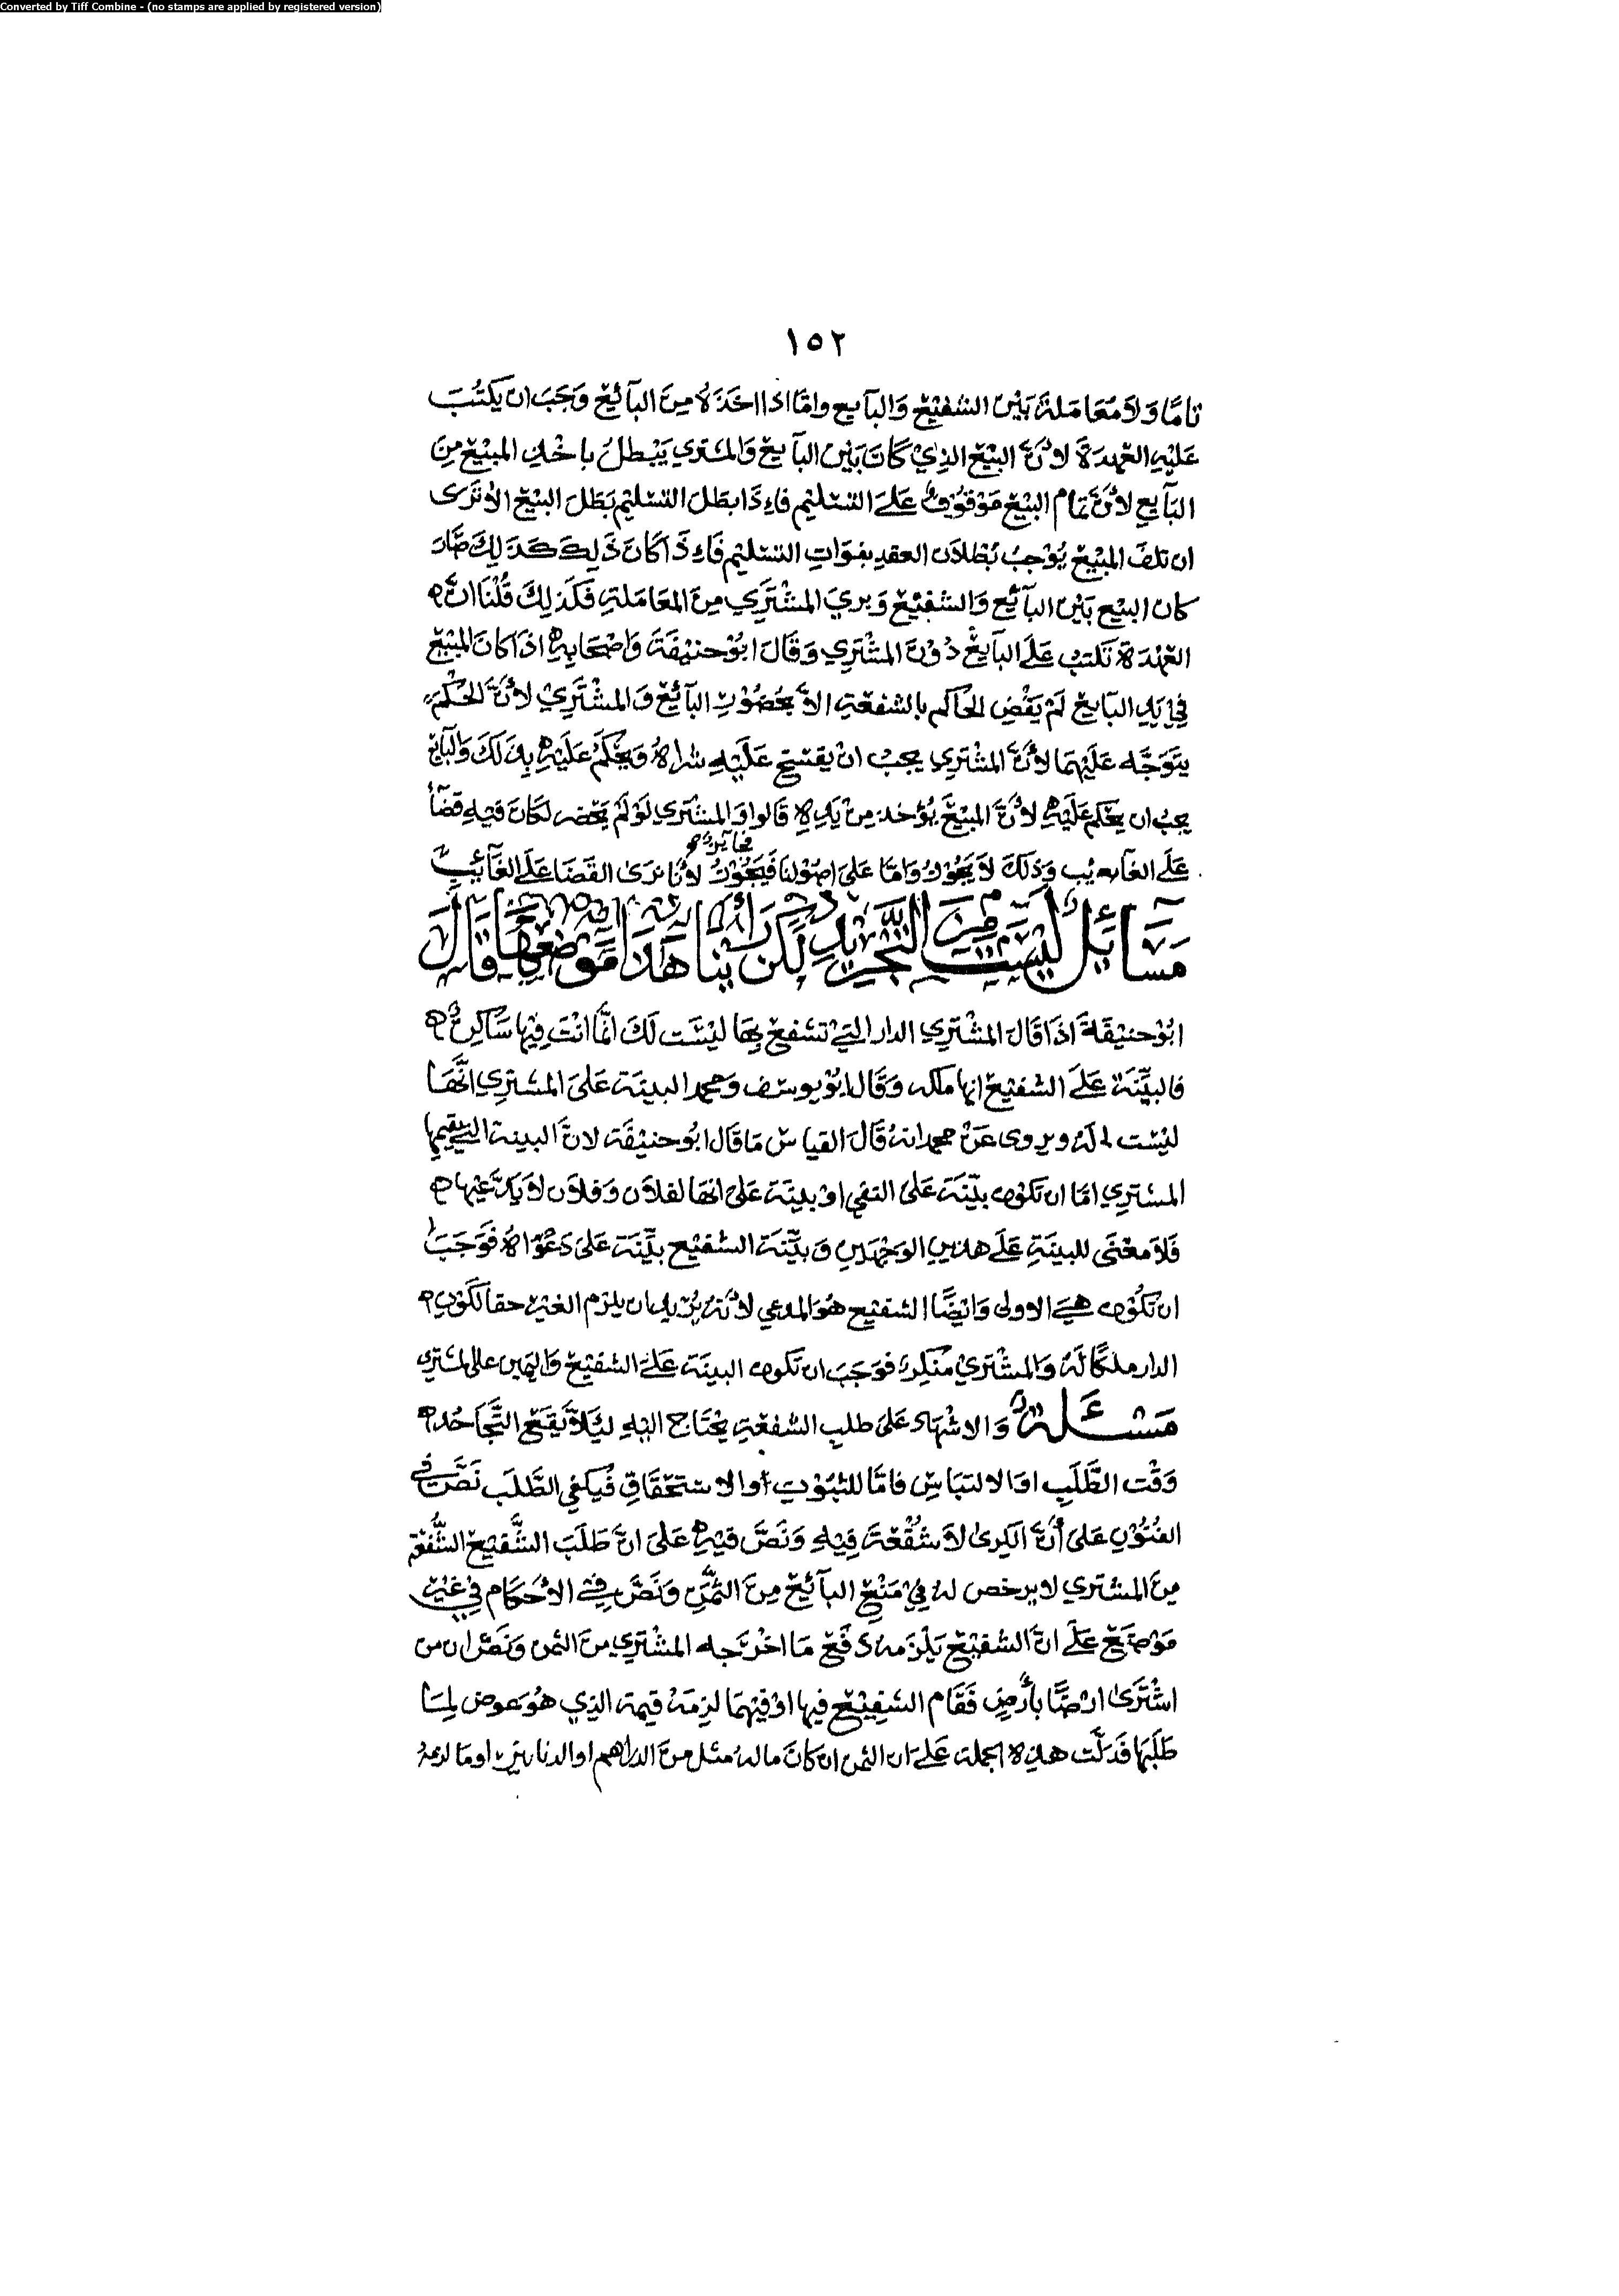 Converted by Tiff Combine - (no stamps are applied by registered version)
١٥٢
تامًا وَلاَ مُعَامَلةَ بَيْن الشفيْع وَالبآيع وامّا اذا اخذهُ مِنَ البآئِع وَجَبَ ان يكتُبَ
عَليْهِ العُهدةَ لأنَّ البَيْع الذِيْ كَانَ بَيْن البآيع وَالمشتري يَبْطلُ باخْذِ المبيْع مِنَ
البآيع لأنَّ تمام البيْع مَوْقوُفٌ عَلىَ التسْليم فاءِذَا بطلَ التسْليم بَطَلَ البيْع الاَ تَرَى
ان تلفَ المبيْع يُوْجبُ بُطْلاَن العقدِ بفوَاتِ التسْليم فَاءِذَا كَانَ ذَلِكَ كَذَلِكَ صَارَ
كان البيْع بَيْن البآئع وَالشفيْع وَبريَ المشْتَرِي مِنَ المعَامَلةِ فكَذلِكَ قُلْنَا انَّ
العُهْدَة تكتبُ عَلىَ البآيعْ دُوْنَ المشْتَرِي وَقَالَ ابُوْحنيْفَةَ وَاصْحَابهِ اذَا كانَ المبيْع
فِي يَدِ البَايع لمْ يَقْضِ الحاكم بالشفعَةِ الاَّ بحُضُوْرِ البآئع وَالمشْتَرِيْ لأنَّ الحُكْمَ
يتَوَجَّه عَليْهمَا لأنَّ المشْتَرِي يجبُ انْ يفسَخ عَليْهِ شراهُ وَيحْكَمُ عَليْهِ بذَلكَ وَالبآيع
يجبُ ان يحْكم عَليْهِ لأنَّ المبيْعَ يُؤخذ مِنْ يَدِهِ قَالوا وَالمشْتري لَوْ لمْ يحْضر لكَانَ فيْهِ قضآءً
عَلىَ الغايب وَذلكَ لاَ يجُوْزُ وَامّا عَلىَ اصُوْلنَا فيَجُوْزُ لأنا نرَى القَضَا عَلىَ الغَآئِب
مَسَآئِلُ ليْسَتْ مِنَ التَّجْريْدِ لكن هَذَا مَوْضعهَا قَالَ
ابُوْحنيْفَةَ اذَا قَالَ المشْترِي الدار التِيْ تشفعُ بهَا ليْسَت لَكَ انّمَا انْتَ فِيْهَا سَاكِنٌ
فالبيّنَة عَلىَ الشفيْع انها ملكه وَقَالَ ابُوْ يوسَف وَمحمد البينَة عَلىَ المشتري انَّهَا
ليْست لهُ ويروى عَنْ محمد انهُ قَالَ القياس مَا قَالَ ابُوحنيْفَة لانَّ البينة التِيْ يقيمها
المشتري امّا ان تكوْن بيّنَة عَلىَ النفي اوْ بينَة عَلىَ انهَا لفلاَن وَفلاَن لاَ يَدَّعيْهَا
فَلاَ معْنَى للبينَةِ عَلىَ هذينِ الوَجْهَيْنِ وَبيّنَة الشفيْع بيّنَة عَلىَ دَعْوَاهُ فوَجَبَ
ان تكُوْن هِيَ الاولى وَايْضًا الشفيْع هُوَ المدعي لأنّهُ يُرِيْد ان يلزم الغيْر حقا لكَوْنِ
الدار ملكًا لهُ وَالمشْترِيْ مُنكِرٌ فوَجَبَ ان تكون البينَة عَلىَ الشفيْع وَاليمين على المشتري
مَسْئَلةٌ وَالاشْهَاد عَلىَ طلبِ الشفْعَةِ يحْتَاج اليْهِ ليَلاَّ يَقَعَ التَّجَاحُد
وَقْت الطَّلَبِ اوَ الالتبَاسِ فامّا للثبُوْتِ اوالاسْتحْقَاقِ فَيكفي الطَّلَب نَصَّ في
الفنُوْنِ عَلىَ أنَّ الكِرىٰ لاَ شُفْعَةَ فِيْهِ وَنَصَّ فيْهِ عَلىَ انَّ طَلَبَ الشَّفيْع الشُّفْعَة
مِنَ المشتري لا يرخص لهُ فِيْ مَنْع البآئِع مِنَ الثمَنِ وَنَصَّ فِي الأحْكَام فِي غيْرِ
مَوْضِعٍ عَلىَ انَّ الشفيْع يَلْزَمهُ دَفْع مَا اخْرَجه المشْتَرِي منَ الثمن وَنَصَّ ان من
اشْتَرَىٰ ارْضًا بأرْضٍ فَقَام الشفيْع فيها اوْ فيْهمَا لزمَهُ قيمة الذِي هُوَ عوض لمَا
طَلَبَهَا فَدَلَّت هذِهِ الجملة عَلىَ ان الثمن ان كانَ ما لهُ مثل منَ الدراهم اوالدنانيْر اوما لزمهُ